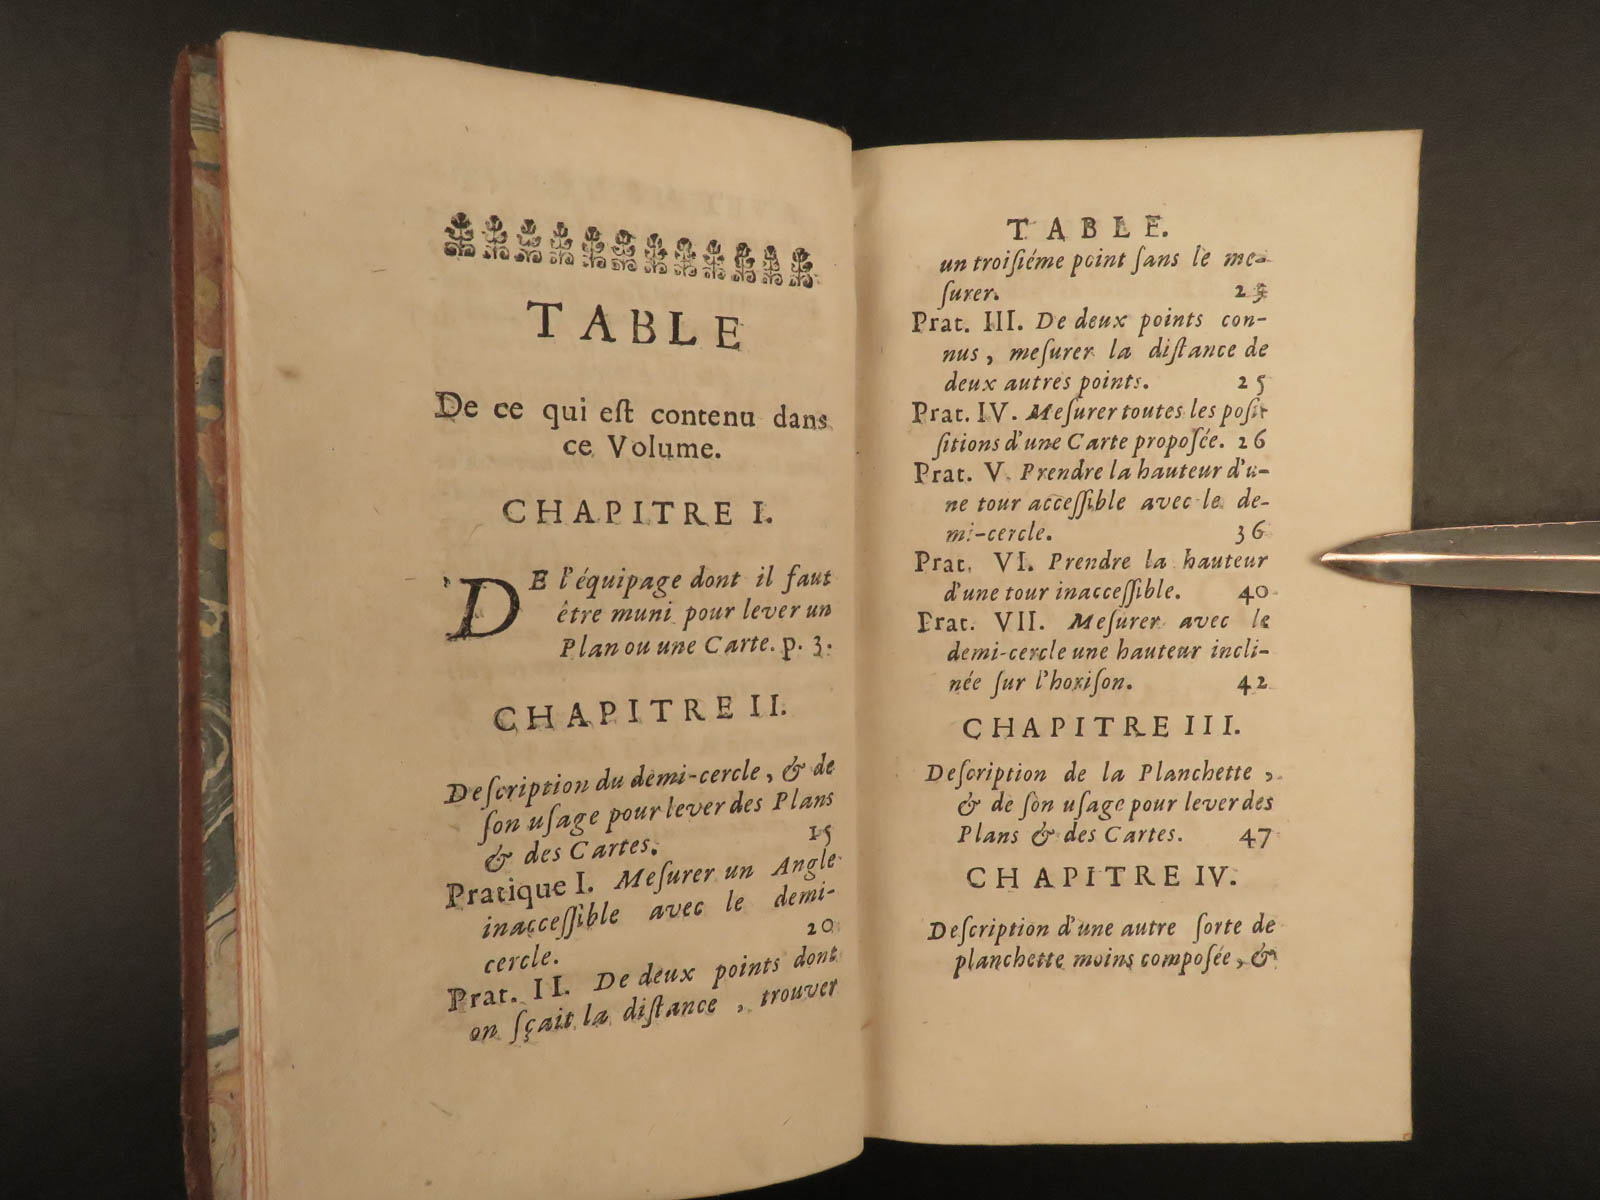 TABLE
De ce qui eſt contenu dans
ce Volume.
CHAPITRE I.
DE l'équipage dont il faut
être muni pour lever un
Plan ou une Carte. p. 3.
CHAPITRE II.
Deſcription du demi-cercle, & de
ſon uſage pour lever des Plans
& des Cartes. 15
Pratique I. Meſurer un Angle
inacceſſible avec le demi-
cercle. 20
Prat. II. De deux points dont
on ſçait la diſtance, trouver
TABLE.
un troiſiéme point ſans le me-
ſurer.
Prat. III. De deux points con-
nus, meſurer la diſtance de
deux autres points. 25
Prat. IV. Meſurer toutes les poſi-
ſitions d'une Carte propoſée. 26
Prat. V. Prendre la hauteur d'u-
ne tour acceſſible avec le de-
mi-cercle. 36
Prat. VI. Prendre la hauteur
d'une tour inacceſſible. 40
Prat. VII. Meſurer avec le
demi-cercle une hauteur incli-
née ſur l'horiſon. 42
CHAPITRE III.
Deſcription de la Planchette,
& de ſon uſage pour lever des
Plans & des Cartes. 47
CHAPITRE IV.
Deſcription d'une autre ſorte de
planchette moins compoſée, &